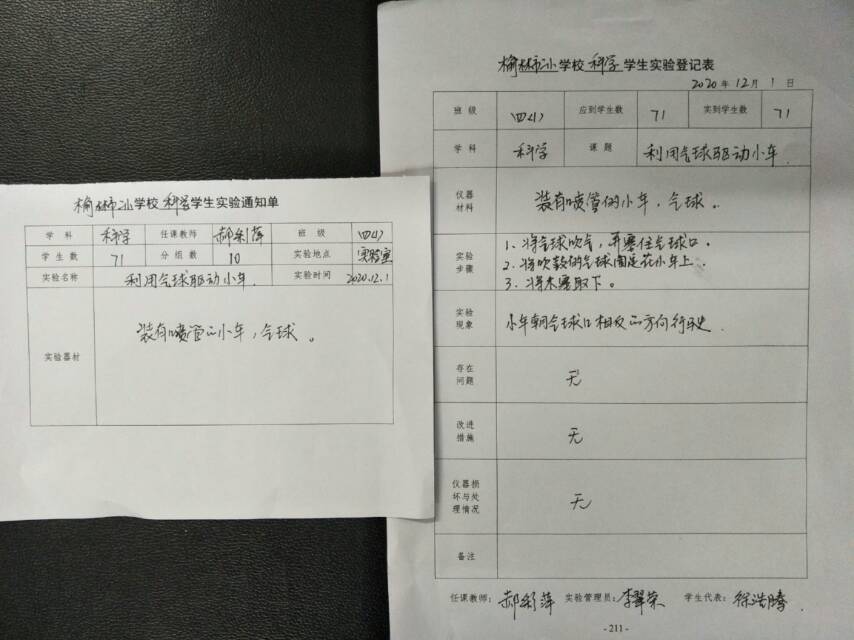 榆林市小学校科学学生实验通知单
学科 科学 任课教师 郝彩萍 班级 四(1)
学生数 71 分组数 10 实验地点 实验室
实验名称 利用气球驱动小车. 实验时间 2020.12.1
实验器材 装有喷管的小车，气球。
榆林市小学校科学学生实验登记表
2020年12月1日
班级 四(1) 应到学生数 71 实到学生数 71
学科 科学 课题 利用气球驱动小车.
仪器材料 装有喷管的小车，气球。
实验步骤 1、将气球吹气，并塞住气球口。
2、将吹鼓的气球固定在小车上。
3、将木塞取下。
实验现象 小车朝气球口相反的方向行驶.
存在问题 无
改进措施 无
仪器损坏与处理情况 无
备注
任课教师：郝彩萍 实验管理员：李翠荣 学生代表：徐浩腾.
- 211 -